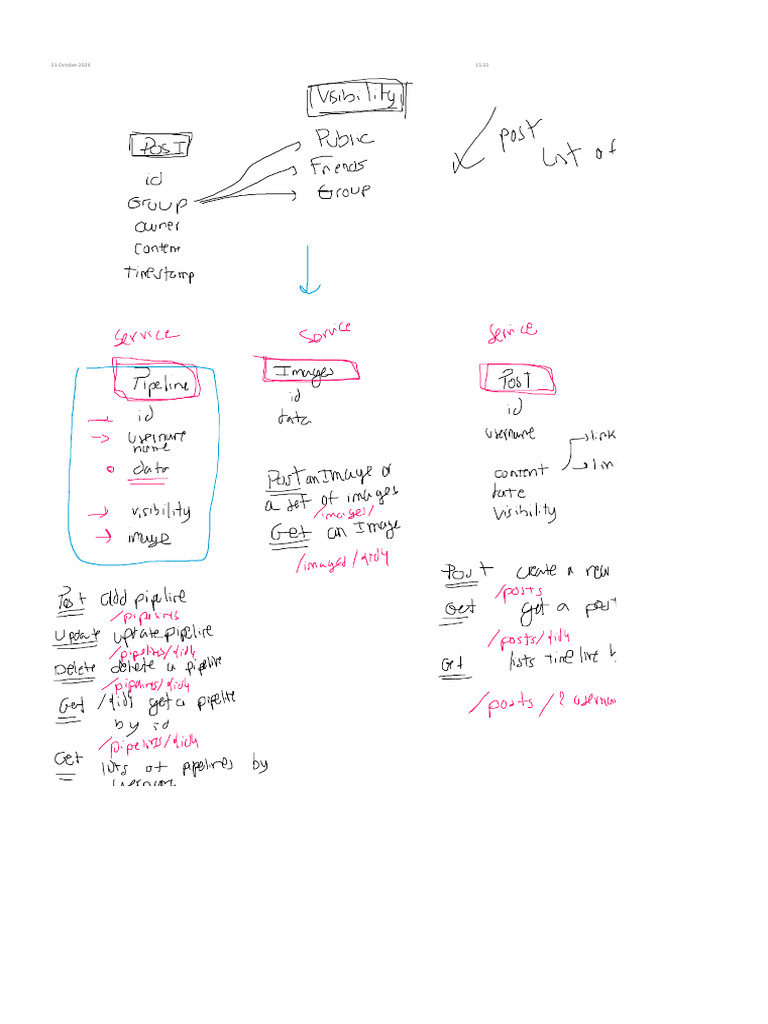 21 October 2024
15:33
Visibility
Public
Friends
Group
POST
id
Group
owner
content
timestamp
post
list of
Service
Pipeline
id
username
name
data
visibility
image
Post add pipeline
/pipelines
Update update pipeline
/pipelines/{id}
Delete delete a pipeline
/pipelines/{id}
Get /{id} get a pipeline
by id
/pipelines/{id}
Get lists of pipelines by
username
Service
Images
id
data
Post an Image or
a set of images
/images/
Get an Image
/images/{id}
Service
POST
id
username
content
link
lin
date
visibility
Post create a new
/posts
Get get a post
/posts/{id}
Get lists timeline b
/posts/?usernam